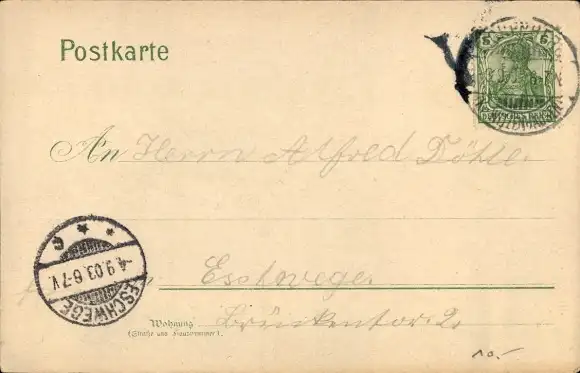 Postkarte
5 5
DEUTSCHES REICH
An Herrn Alfred Döhle
ESCHWEGE
-4.9.03.6-7V.
Eschwege
Wohnung
(Straße und Hausnummer).
Brückentor 2.
10.-